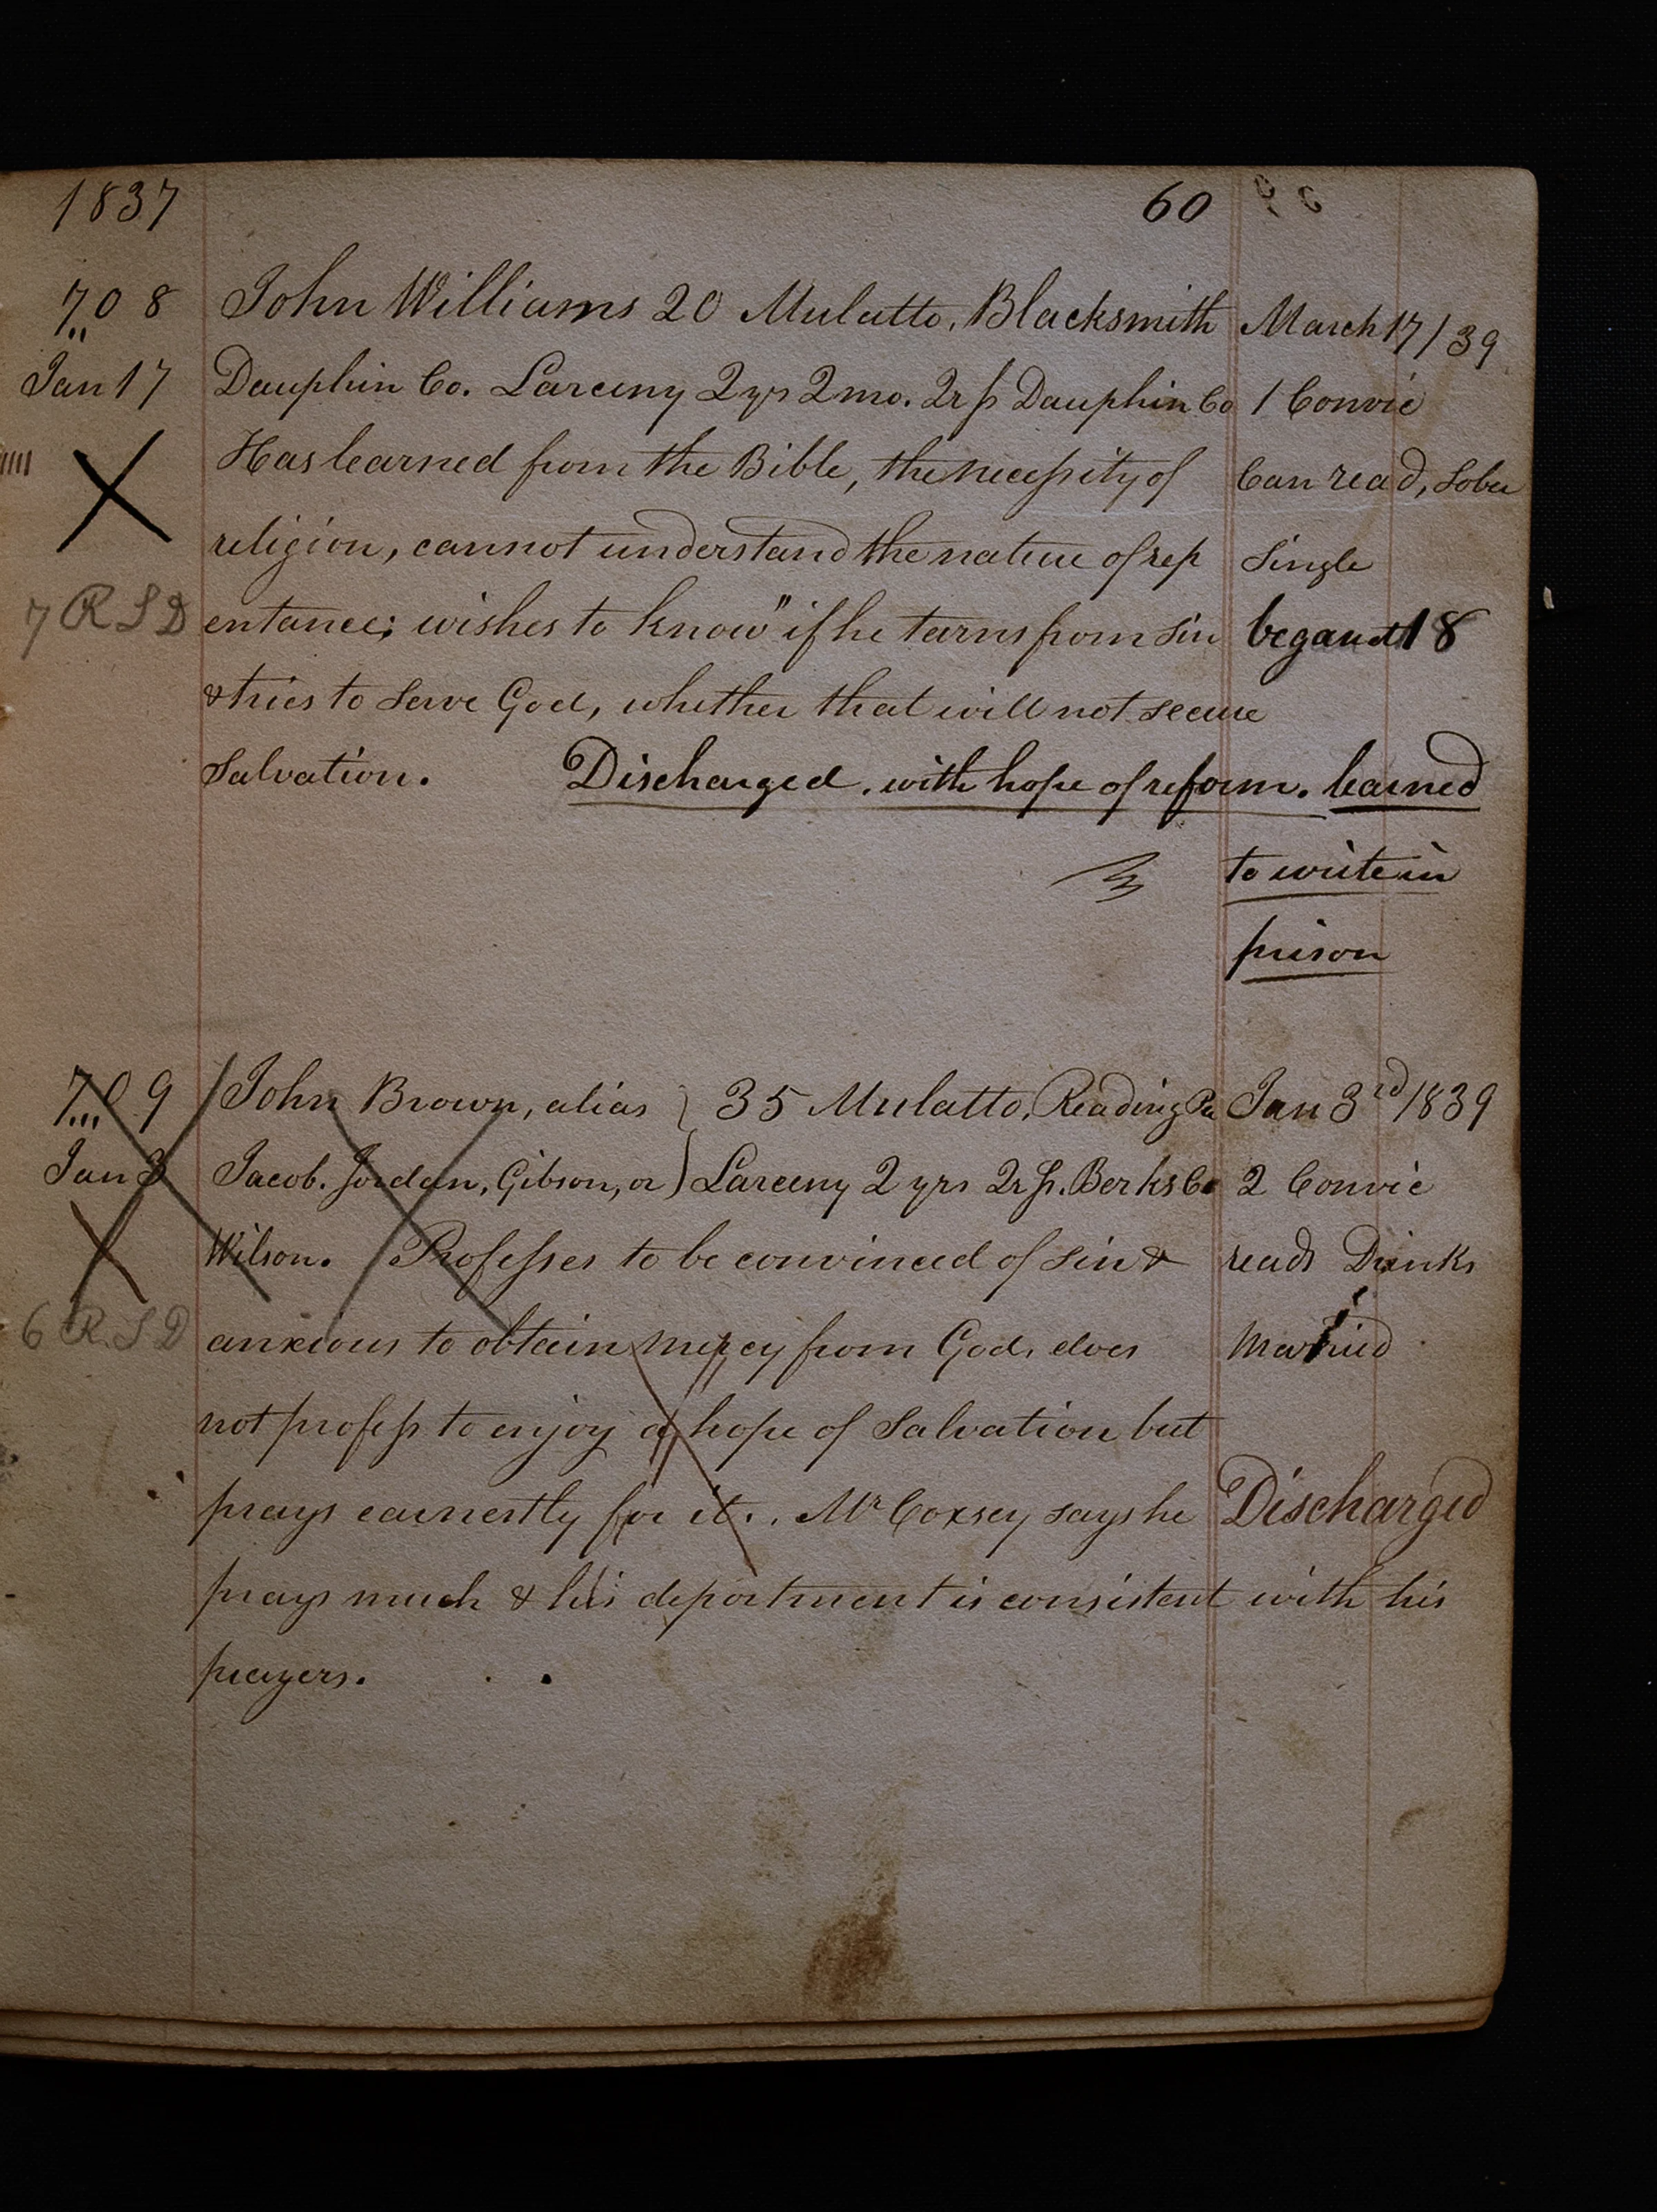 1837 60
708 John Williams 20 Mulatto, Blacksmith March 17/39
Jan 17 Dauphin Co. Larceny 2 yrs 2 mo. 2r p Dauphin Co 1 Convic
Has learned from the Bible, the necessity of Can read, Sober
religion, cannot understand the nature of rep Single
7 R S D entance; wishes to know" if he turns from sin began at 18
& tries to Serve God, whether that will not secure
Salvation. Discharged. with hope of reform. learned
to write in
prison
709 John Brown, alias } 35 Mulatto, Reading Pa Jan 3rd/1839
Jan 3 Jacob. Jordan, Gibson, or ) Larceny 2 yrs 2r p. Berks Co 2 Convic
Wilson. Professes to be convinced of sin & reads Drinks
6 R. S D anxious to obtain mercy from God, does Married
not profess to enjoy a hope of Salvation but
prays earnestly for it. . Mr Coxsey says he Discharged
prays much & his deportment is consistent with his
prayers.